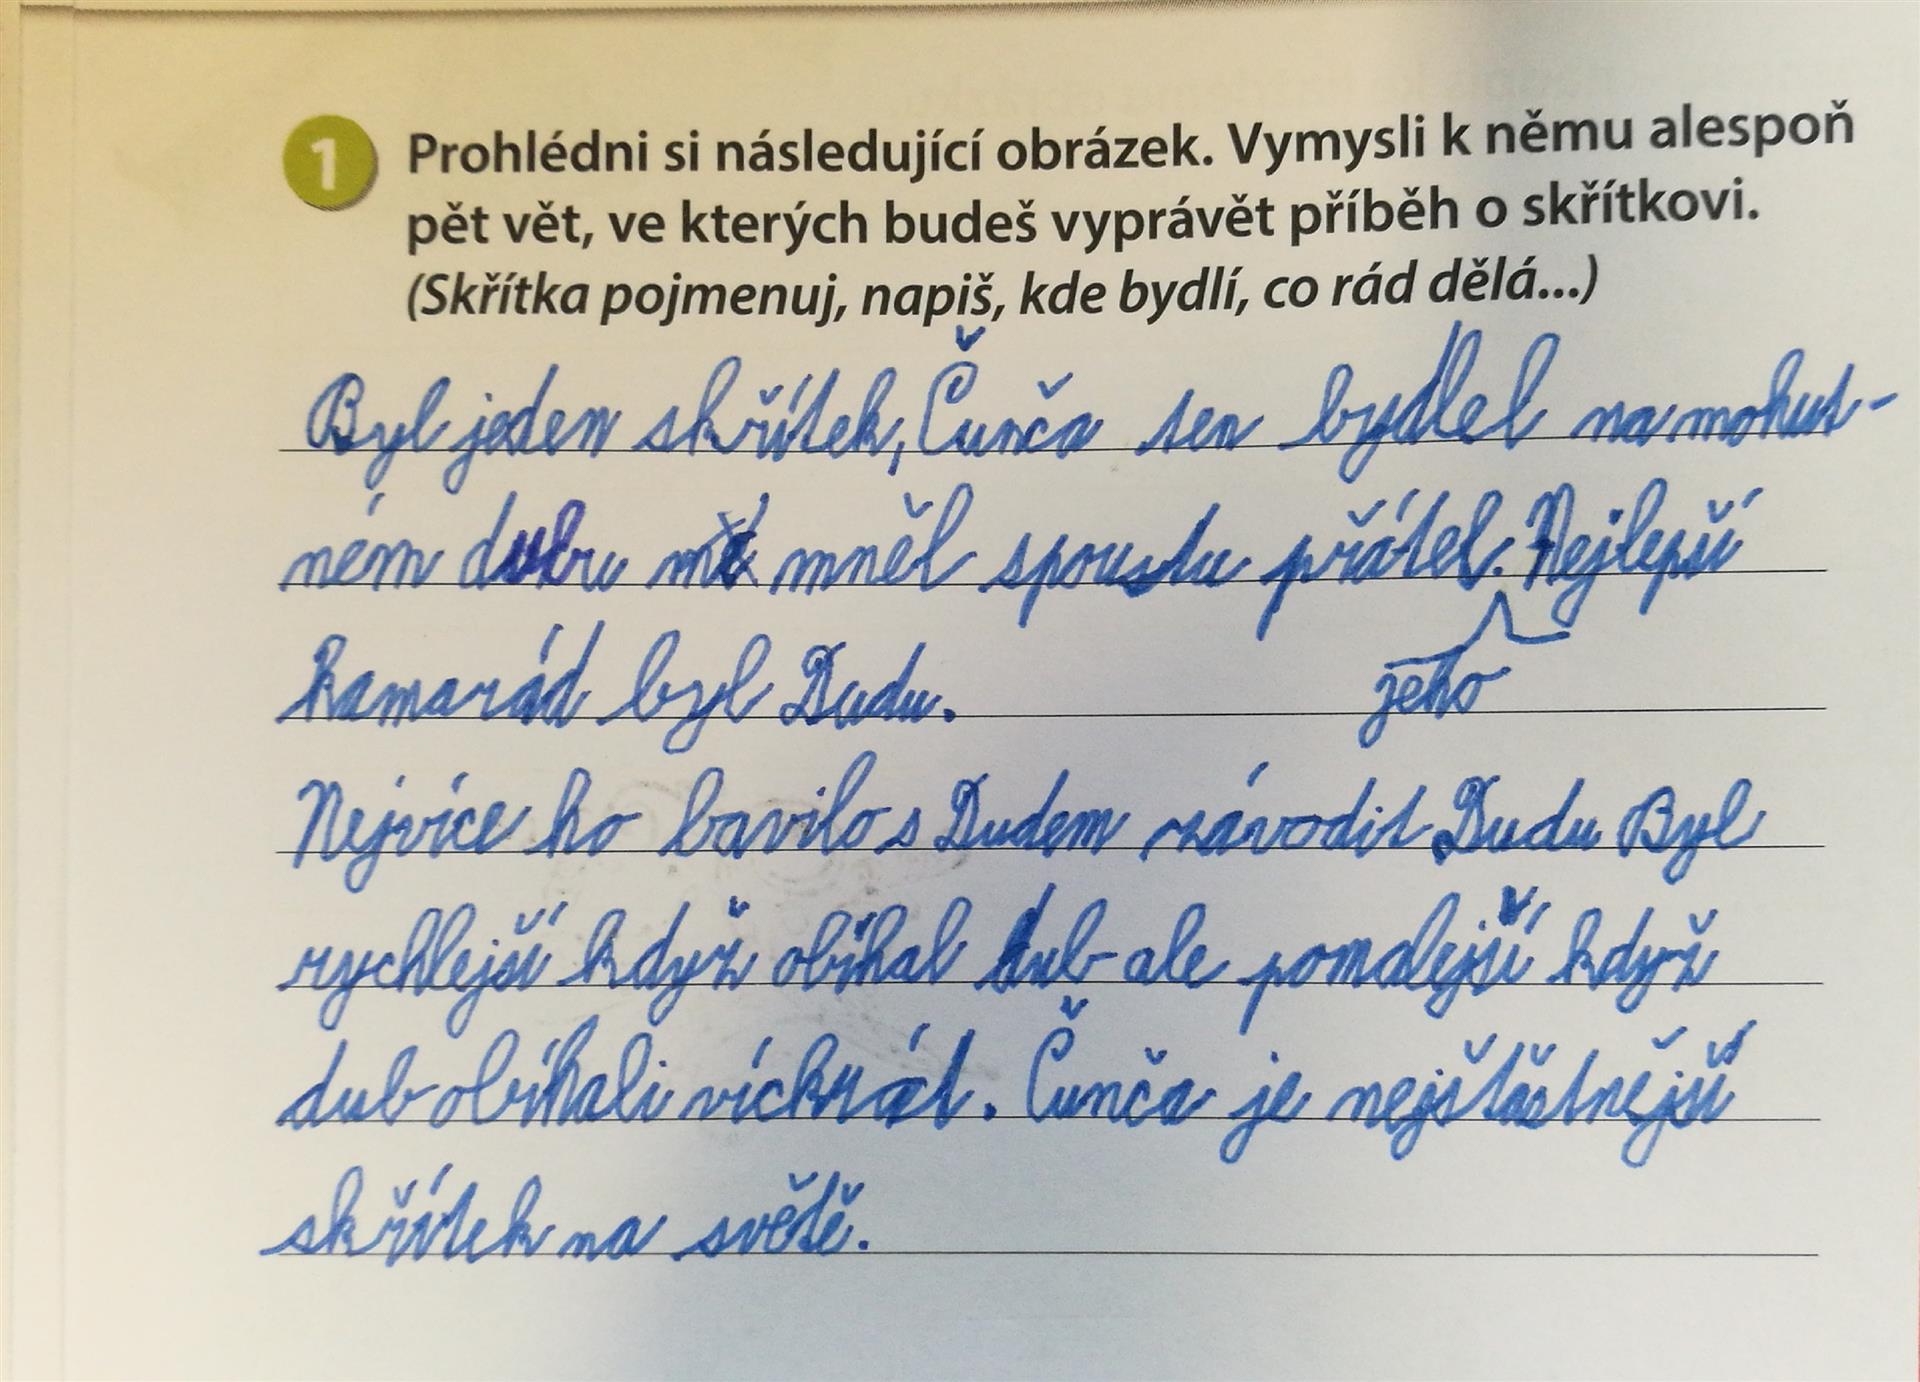 1 Prohlédni si následující obrázek. Vymysli k němu alespoň
pět vět, ve kterých budeš vyprávět příběh o skřítkovi.
(Skřítka pojmenuj, napiš, kde bydlí, co rád dělá...)
Byl jeden skřítek, Čunča ten bydlel na mohut-
ném dubu mněl spoustu přátel. Nejlepší
jeho
kamarád byl Dudu.
Nejvíce ho bavilo s Dudem závodit Dudu Byl
rychlejší když obíhal dub ale pomalejší když
dub obíhali víckrát. Čunča je nejšťastnější
skřítek na světě.